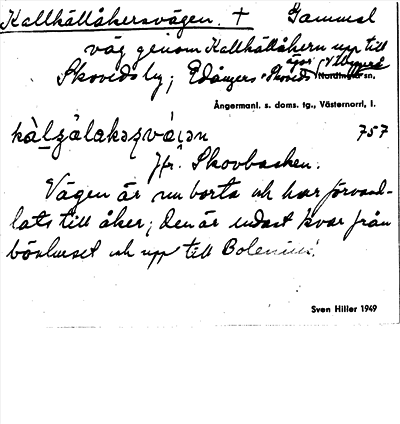 Kallhällåkersvägen. + Gammal
väg genom Kallhällåkern upp till
Skovidsby; Edångers o. Skovids
ägor
Nordingrå sn.
Ångermanl. s. doms. tg., Västernorrl. l.
757
Jfr. Skovbacken.
Vägen är nu borta och har förvand-
lats till åker; den är endast kvar från
böuhuset och upp till Bolenius'.
Sven Hiller 1949